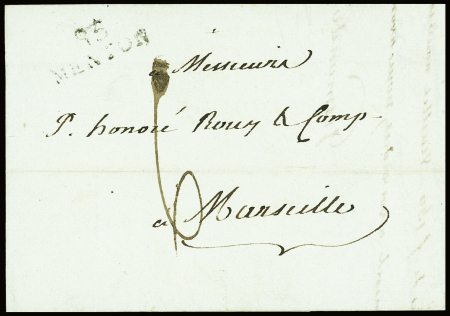 85
MENTON
à Messieurs
P. honoré Roux & Comp.
6
à Marseille